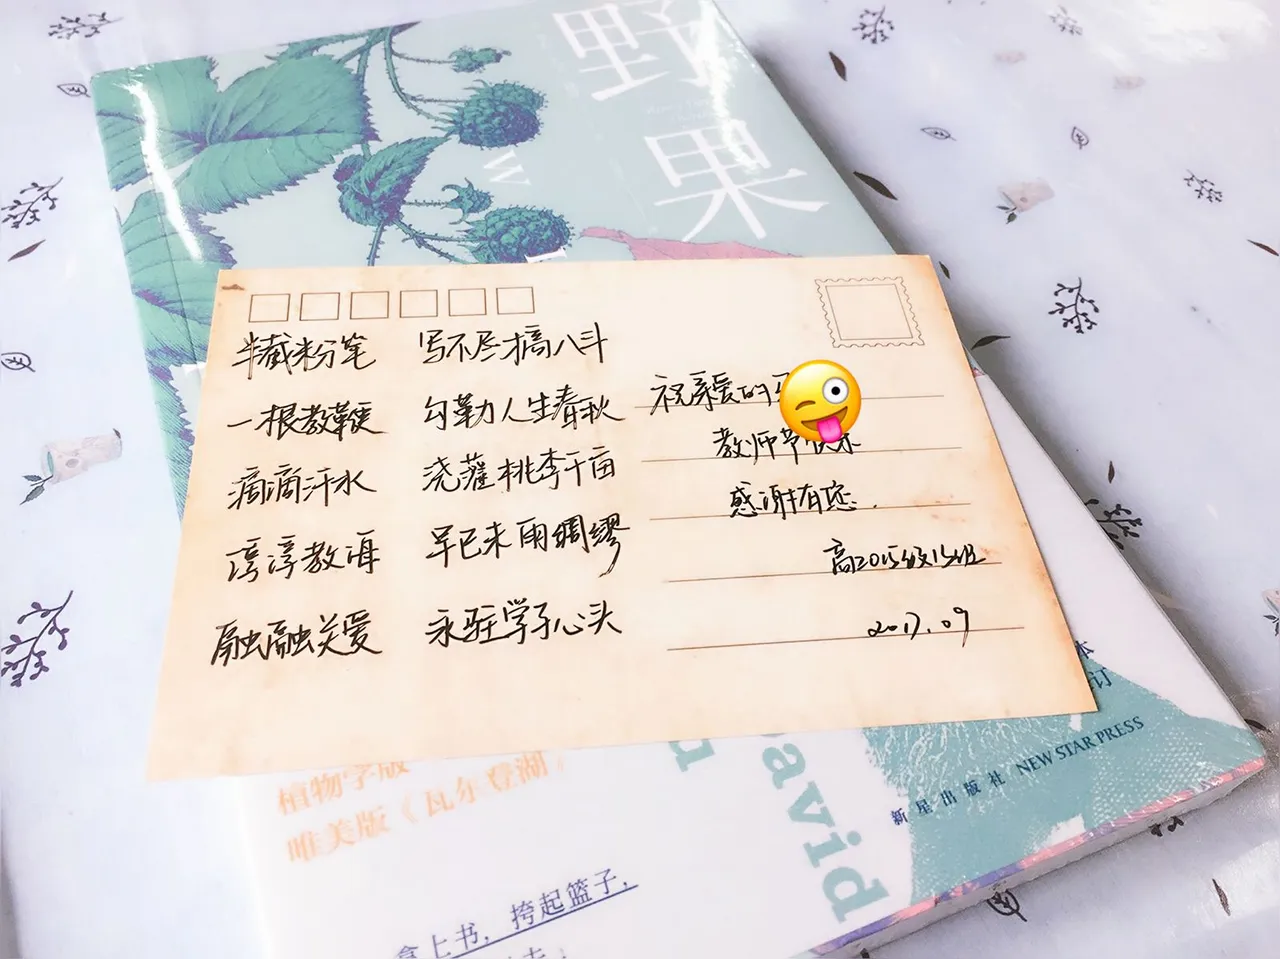 野
果
W
半截粉笔 写不尽才高八斗
一根教鞭 勾勒人生春秋
滴滴汗水 浇灌桃李千亩
谆谆教诲 早已未雨绸缪
融融关爱 永驻学子心头
祝亲爱的
教师节快乐
感谢有您.
高2015级15班
2017.09
植物学版
唯美版《瓦尔登湖》
拿上书,挎起篮子,
David
订
新星出版社 NEW STAR PRESS